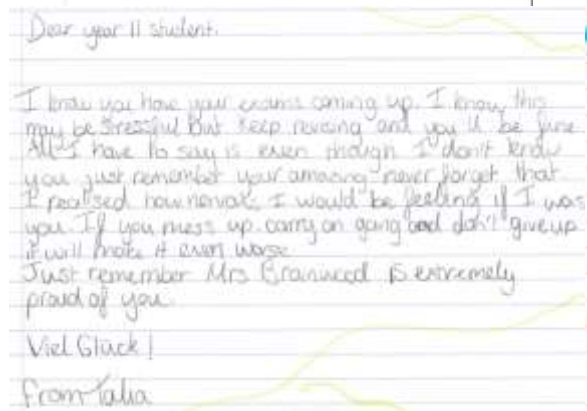 Dear year 11 student.
I know you have your exams coming up. I know this
may be stressful but keep revising and you'll be fine
All I have to say is even though I don't know
you just remember your amazing never forget that.
I realised how nervous I would be feeling if I was
you. If you mess up carry on going and don't give up
it will make it even worse
Just remember Mrs is extremely
proud of you.
Viel Glück!
From Talia